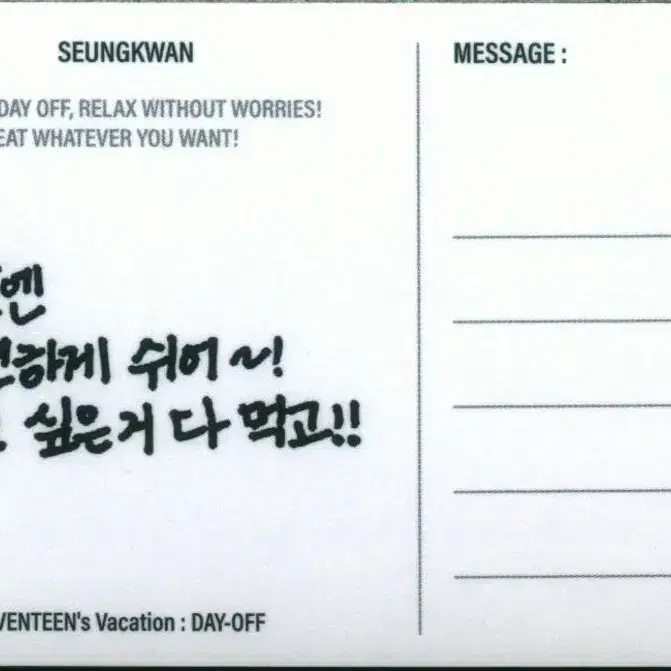 SEUNGKWAN
DAY OFF, RELAX WITHOUT WORRIES!
EAT WHATEVER YOU WANT!
엔
하게 쉬어~!
싶은거 다 먹고!!
VENTEEN's Vacation : DAY-OFF
MESSAGE :